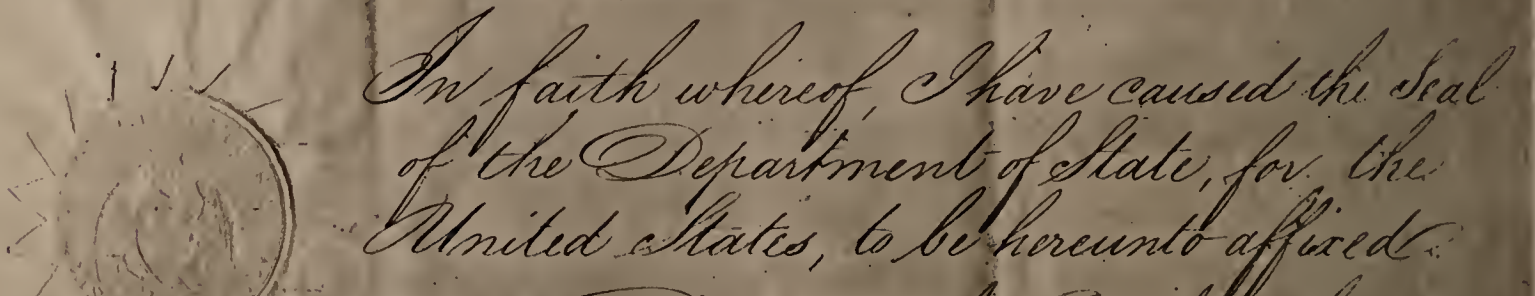 In faith whereof, I have caused the Seal
of the Department of State, for the
United States, to be hereunto affixed